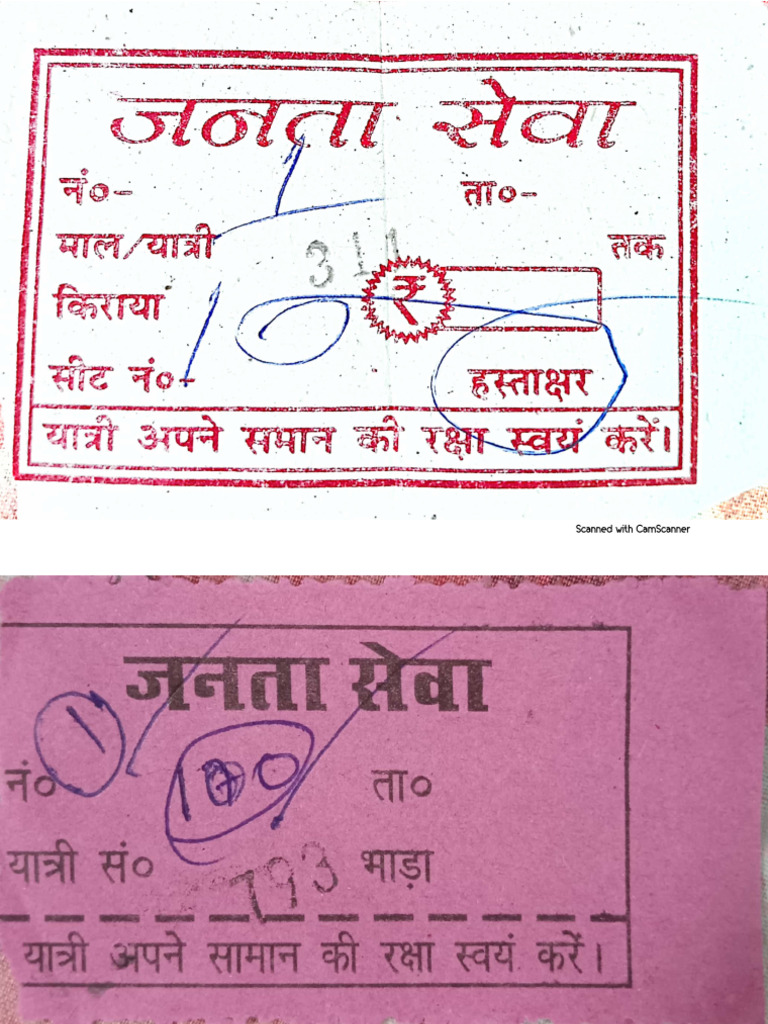 जनता सेवा
नं०- ता०-
माल/यात्री तक
311
किराया ₹
सीट नं०- हस्ताक्षर
यात्री अपने समान की रक्षा स्वयं करें।
Scanned with CamScanner
जनता सेवा
1
100
नं० ता०
यात्री सं० 793 भाड़ा
यात्री अपने सामान की रक्षा स्वयं करें।